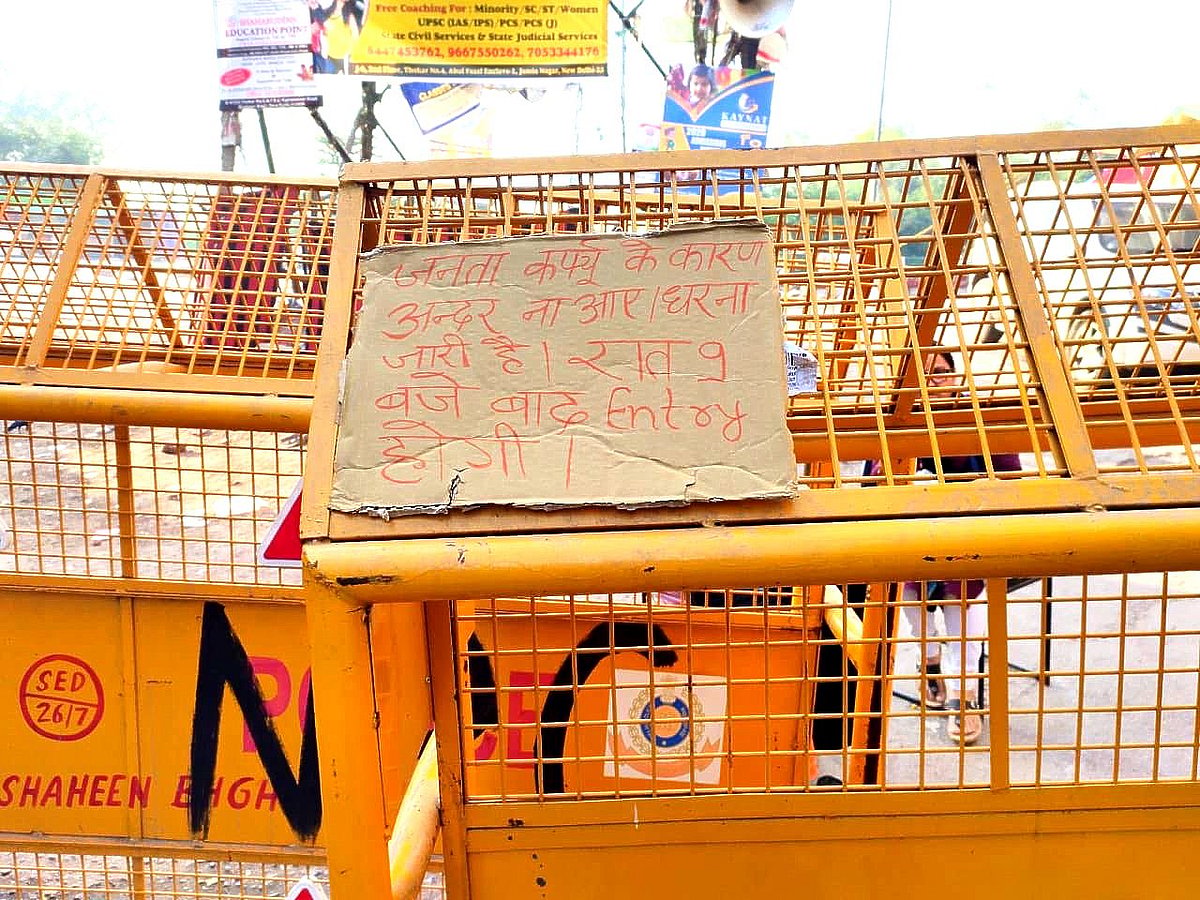 EDUCATION POINT
Free Coaching For : Minority/SC/ST/Women
UPSC (IAS/IPS)/PCS/PCS (J)
State Civil Services & State Judicial Services
9447453762, 9667550262, 7053344176
KAYNAT
जनता कर्फ्यू के कारण
अन्दर ना आए। धरना
जारी है। रात 9
बजे बाद Entry
होगी।
SED
26/7
SHAHEEN BHGH
N
C